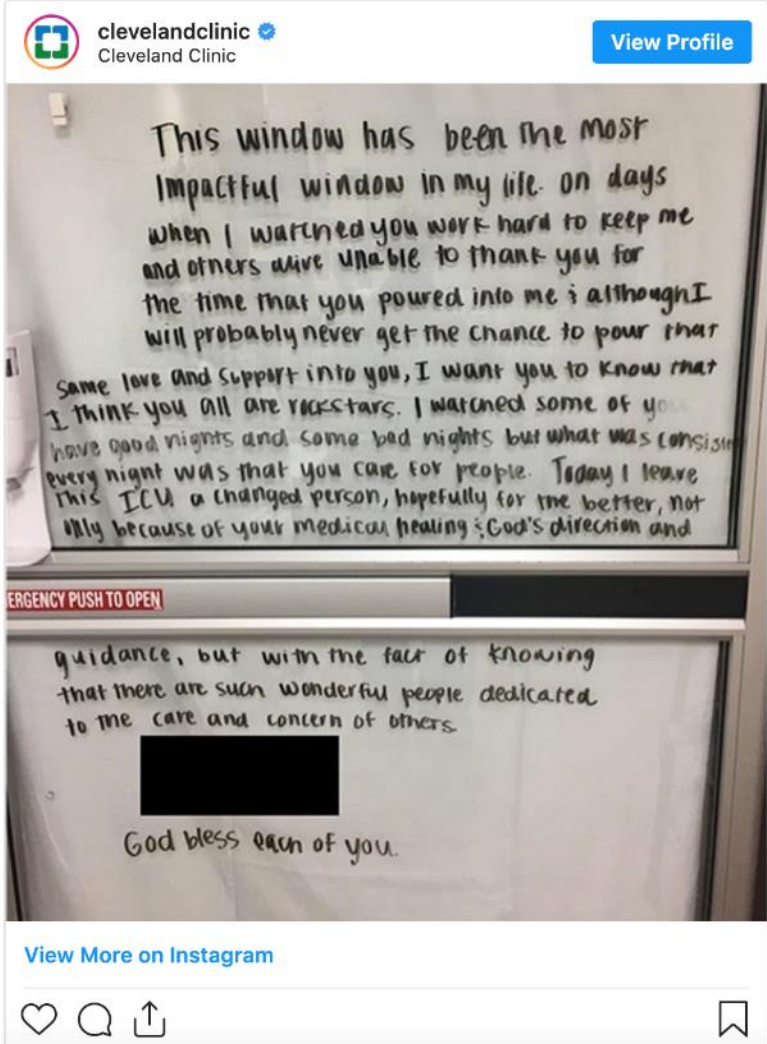 clevelandclinic
Cleveland Clinic
View Profile
This window has been the most
impactful window in my life. on days
when I watched you work hard to keep me
and others alive unable to thank you for
the time that you poured into me & although I
will probably never get the chance to pour that
same love and support into you, I want you to know that
I think you all are rockstars. I watched some of you
have good nights and some bad nights but what was consist
every night was that you care for people. Today I leave
This ICU a changed person, hopefully for the better, not
only because of your medical healing & God's direction and
ERGENCY PUSH TO OPEN
guidance, but with the fact of knowing
that there are such wonderful people dedicated
to the care and concern of others.
God bless each of you.
View More on Instagram